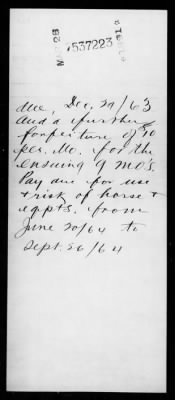 7537223
due, Dec, 20/63
And a further
forfeiture of $10
per. Mo. for the
ensuing 9 mo's.
Pay due for use
+ risk of horse +
eqpts. from
June 20/64 to
Sept. 26/64